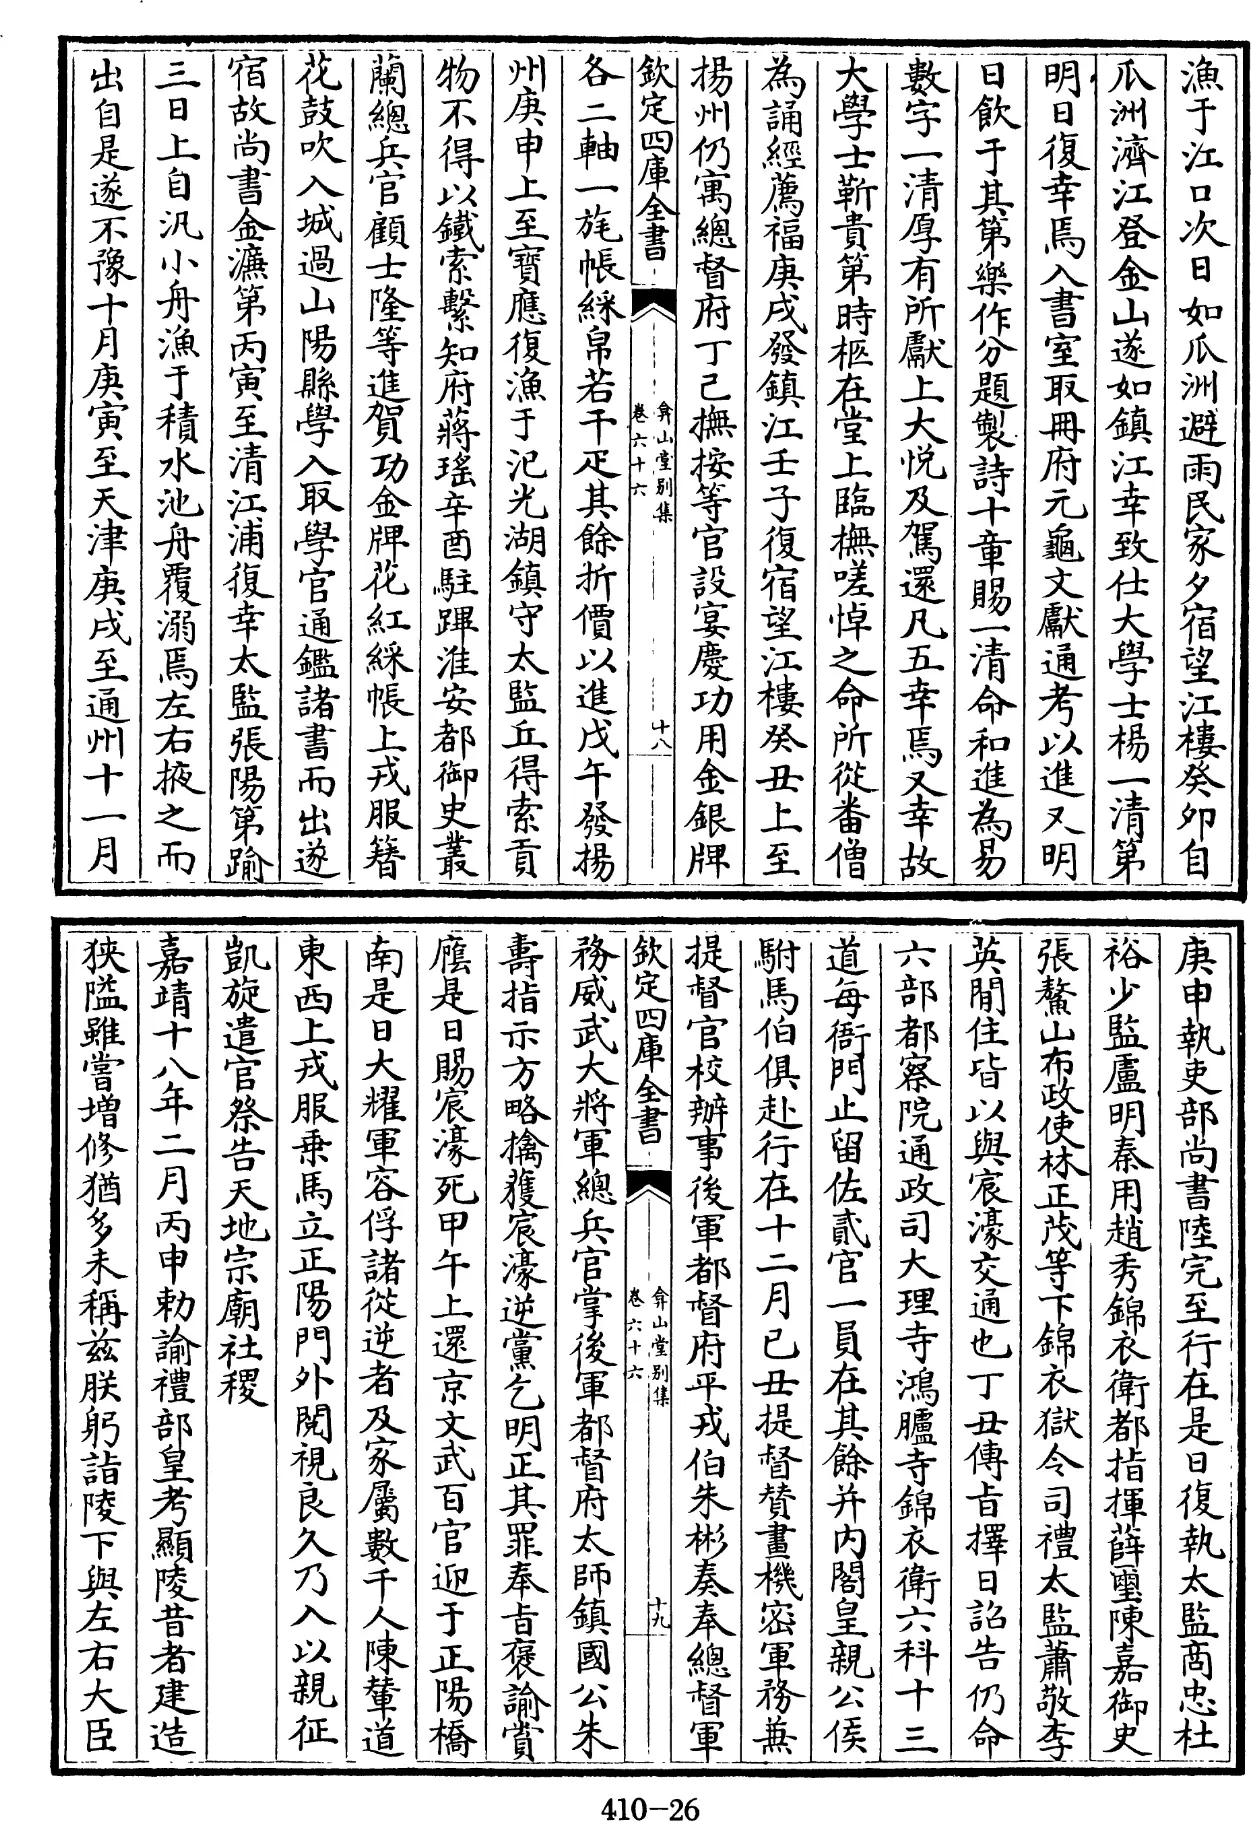 漁于江口次日如瓜洲避雨民家夕宿望江樓癸卯自
瓜洲濟江登金山遂如鎮江幸致仕大學士楊一清第
明日復幸焉入書室取冊府元龜文獻通考以進又明
日飲于其第樂作分題製詩十章賜一清命和進為易
數字一清厚有所獻上大悅及駕還凡五幸焉又幸故
大學士靳貴第時柩在堂上臨撫嗟悼之命所從番僧
為誦經薦福庚戌發鎮江壬子復宿望江樓癸丑上至
揚州仍寓總督府丁己撫按等官設宴慶功用金銀牌
欽定四庫全書
弇山堂別集
卷六十六
十八
各二軸一旄帳綵帛若干疋其餘折價以進戊午發揚
州庚申上至寶應復漁于氾光湖鎮守太監丘得索貢
物不得以鐵索繫知府蔣瑤辛酉駐蹕淮安都御史叢
蘭總兵官顧士隆等進賀功金牌花紅綵帳上戎服簪
花鼓吹入城過山陽縣學入取學官通鑑諸書而出遂
宿故尚書金濂第丙寅至清江浦復幸太監張陽第踰
三日上自汎小舟漁于積水池舟覆溺焉左右掖之而
出自是遂不豫十月庚寅至天津庚戌至通州十一月
庚申執吏部尚書陸完至行在是日復執太監商忠杜
裕少監盧明秦用趙秀錦衣衛都指揮薛璽陳嘉御史
張鰲山布政使林正茂等下錦衣獄令司禮太監蕭敬李
英閒住皆以與宸濠交通也丁丑傳旨擇日詔告仍命
六部都察院通政司大理寺鴻臚寺錦衣衛六科十三
道每衙門止留佐貳官一員在其餘并內閣皇親公侯
駙馬伯俱赴行在十二月已丑提督贊畫機密軍務兼
提督官校辦事後軍都督府平戎伯朱彬奏奉總督軍
欽定四庫全書
弇山堂別集
卷六十六
十九
務威武大將軍總兵官掌後軍都督府太師鎮國公朱
壽指示方略擒獲宸濠逆黨乞明正其罪奉旨褒諭賞
廕是日賜宸濠死甲午上還京文武百官迎于正陽橋
南是日大耀軍容俘諸從逆者及家屬數千人陳輦道
東西上戎服乗馬立正陽門外閱視良久乃入以親征
凱旋遣官祭告天地宗廟社稷
嘉靖十八年二月丙申勅諭禮部皇考顯陵昔者建造
狹隘雖嘗增修猶多未稱茲朕躬詣陵下與左右大臣
410-26